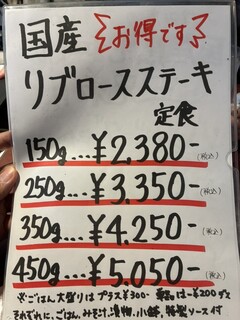 国産 お得です
リブロースステーキ
定食
150g…¥2,380-(税込)
250g…¥3,350-(税込)
350g…¥4,250-(税込)
450g…¥5,050-(税込)
※ごはん大盛りはプラス¥300- 単品は-¥200です
それぞれに、ごはん、みそ汁、漬物、小鉢、特製ソース付